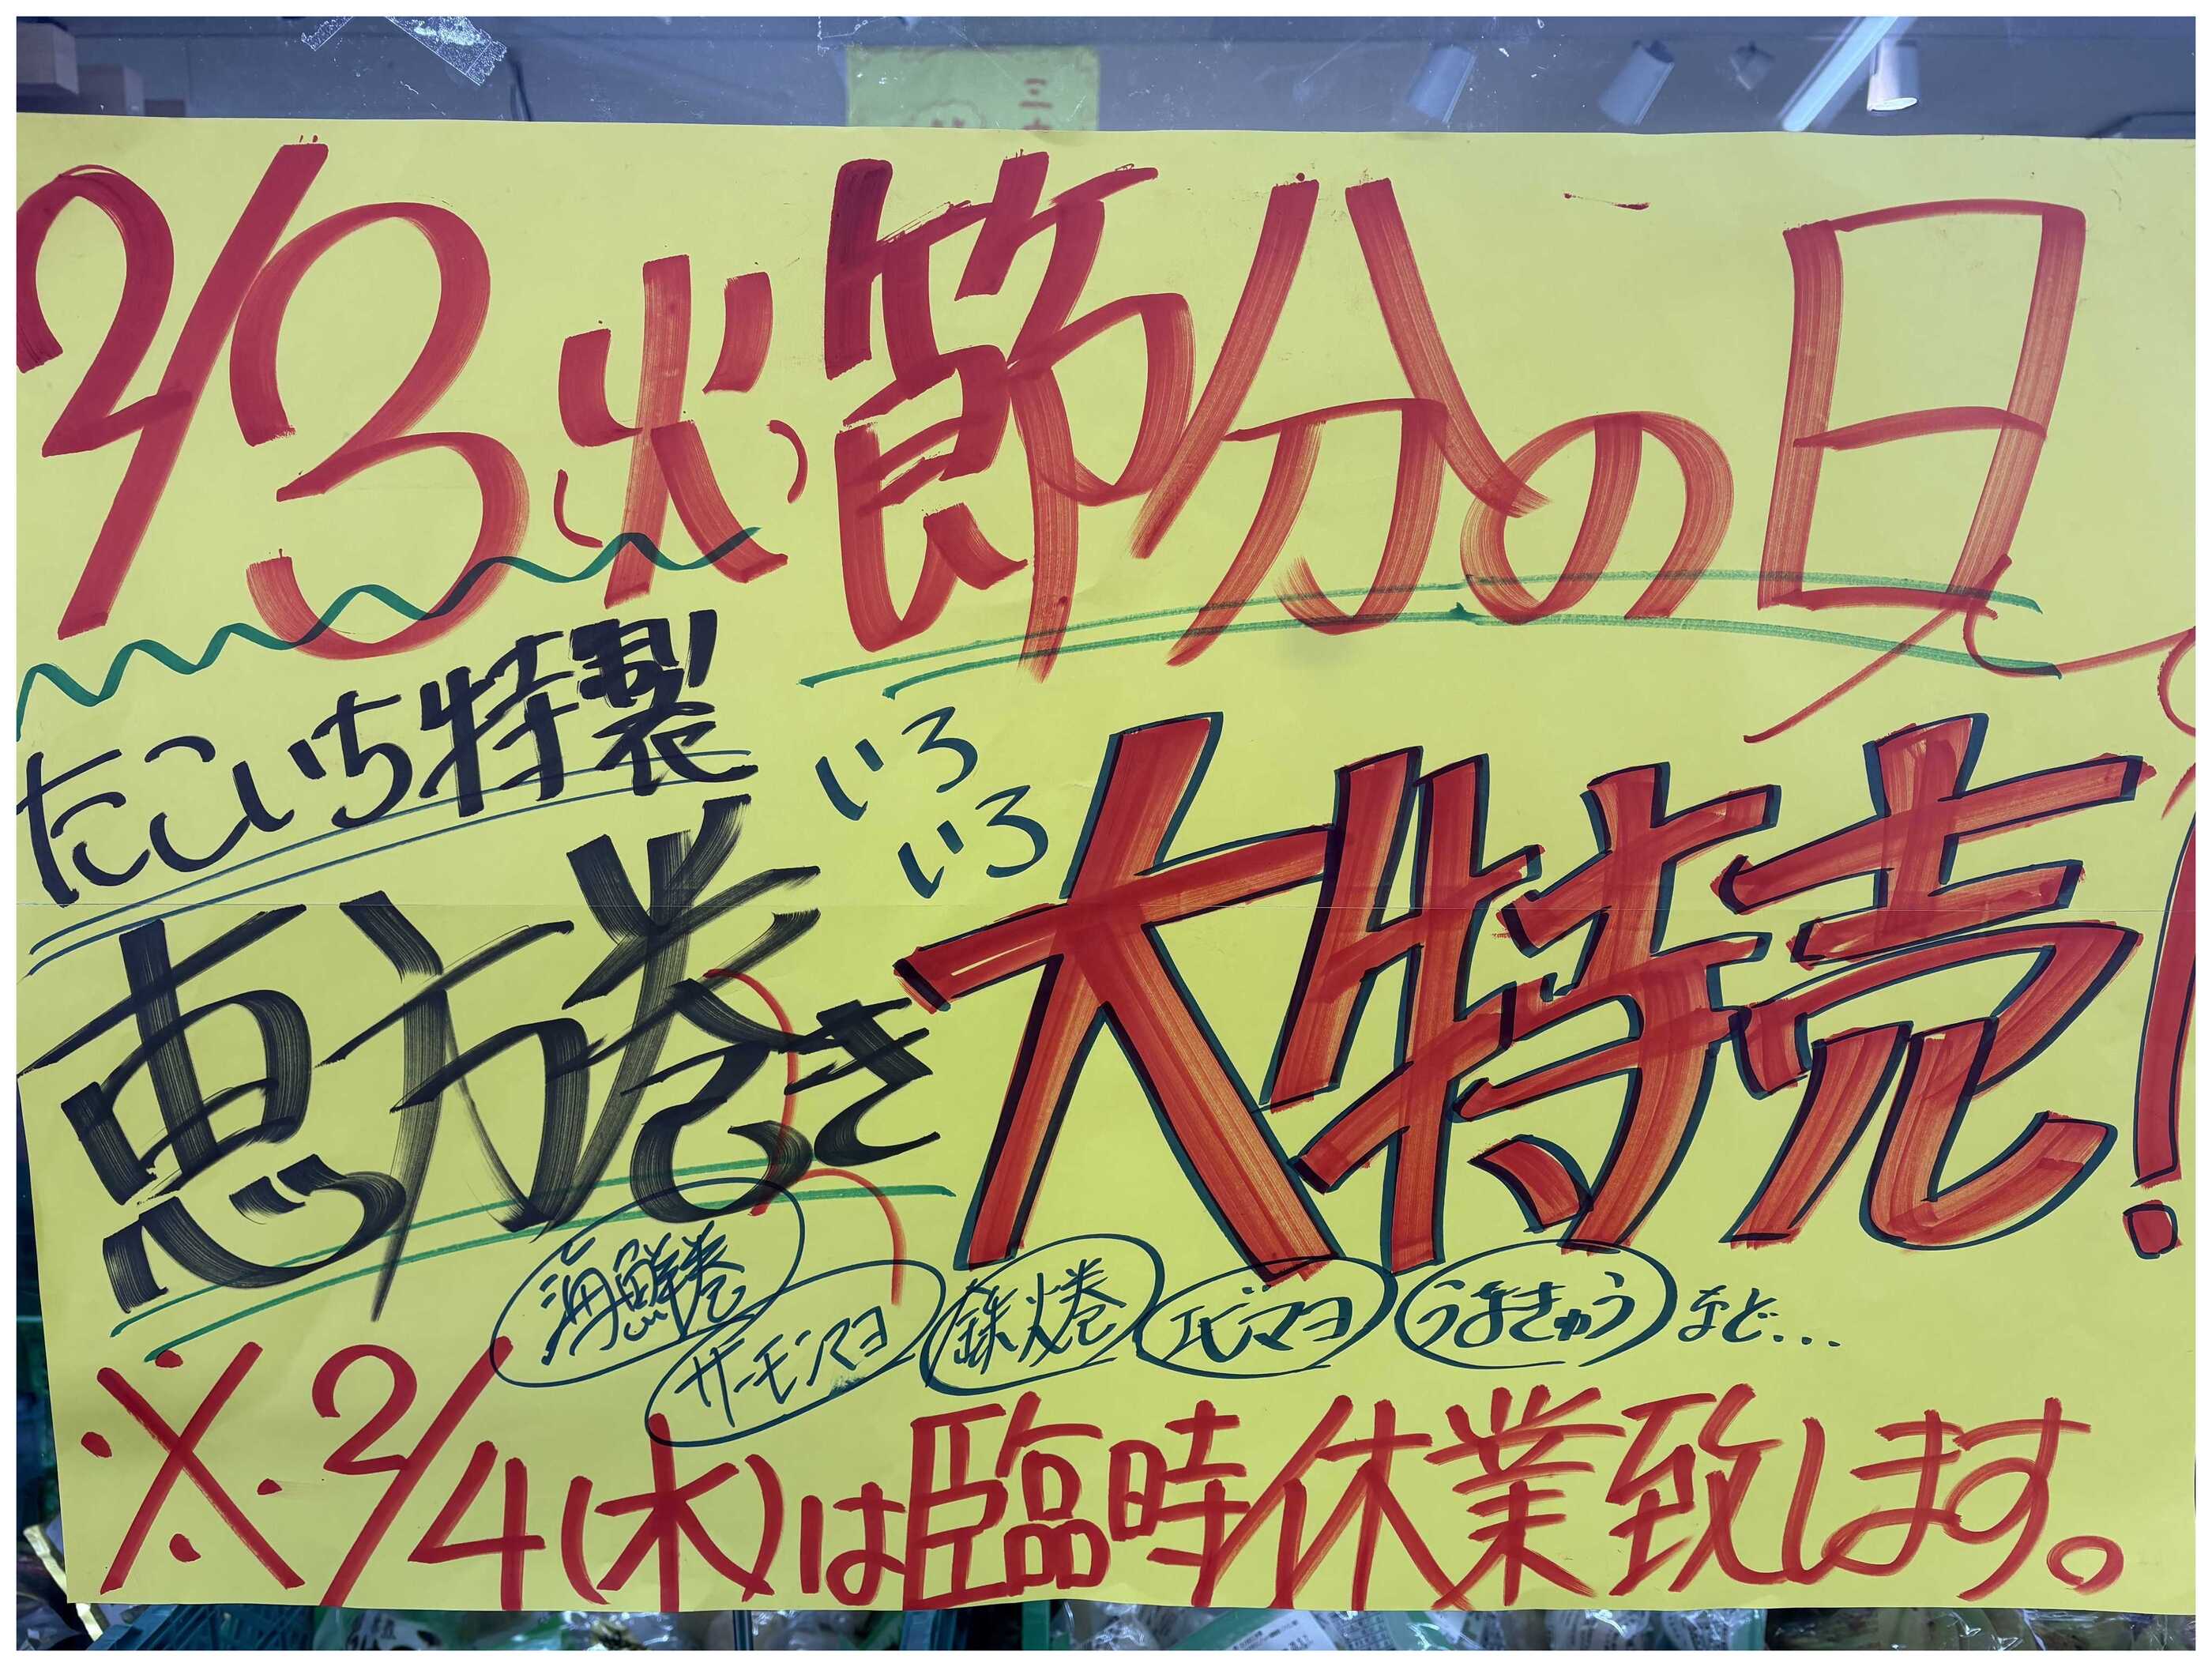 2/3(火)節分の日
たこいち特製
恵方巻き
いろいろ
大特売!
海鮮巻 サーモンマヨ 鉄火巻 エビマヨ うまきゅう など...
※2/4(水)は臨時休業致します。